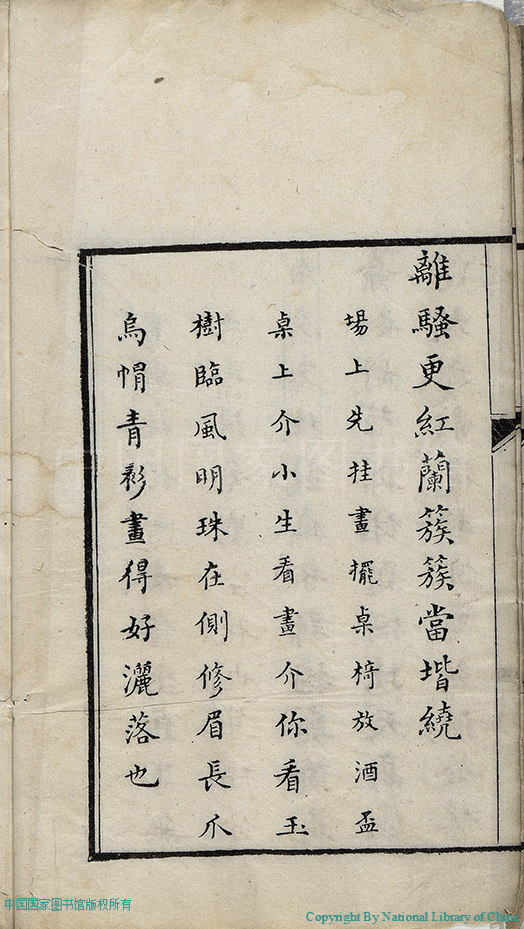 離騷更紅蘭簇簇當堦繞
場上先挂畫擺桌椅放酒盃
桌上介小生看畫介你看玉
樹臨風明珠在側修眉長爪
烏帽青衫畫得好灑落也
中国国家图书馆版权所有
Copyright By National Library of China